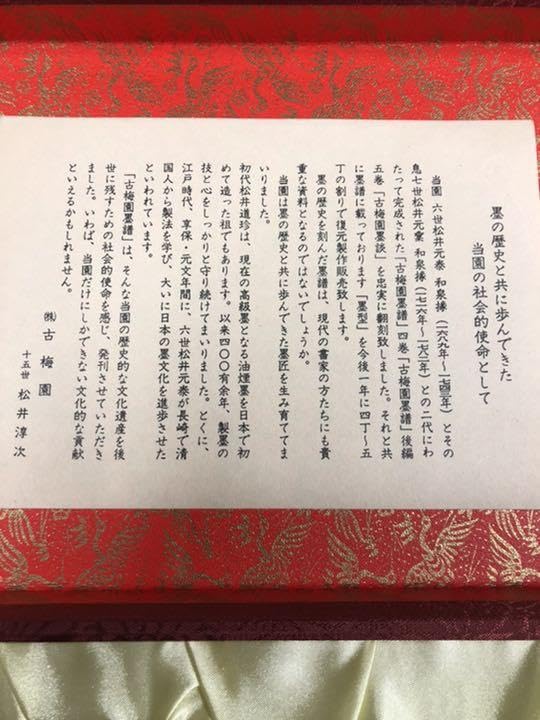 墨の歴史と共に歩んできた
当園の社会的使命として
当園　六世松井元泰　和泉掾（一六八九年～一七四三年）とその
息七世松井元彙　和泉掾（一七一六年～一七八二年）との二代にわ
たって完成された「古梅園墨譜」四巻「古梅園墨譜」後編
五巻「古梅園墨談」を忠実に翻刻致しました。それと共
に墨譜に載っております「墨型」を今後一年に四丁～五
丁の割りで復元製作販売致します。
墨の歴史を刻んだ墨譜は、現代の書家の方たちにも貴
重な資料となるのではないでしょうか。
当園は墨の歴史と共に歩んできた墨匠を生み育ててま
いりました。
初代松井道珍は、現在の高級墨となる油煙墨を日本で初
めて造った祖でもあります。以来四〇〇有余年、製墨の
技と心をしっかりと守り続けてまいりました。とくに、
江戸時代、享保・元文年間に、六世松井元泰が長崎で清
国人から製法を学び、大いに日本の墨文化を進歩させた
といわれています。
「古梅園墨譜」は、そんな当園の歴史的な文化遺産を後
世に残すための社会的使命を感じ、発刊させていただき
ました。いわば、当園だけにしかできない文化的な貢献
といえるかもしれません。
㈱古梅園
十五世　松井淳次